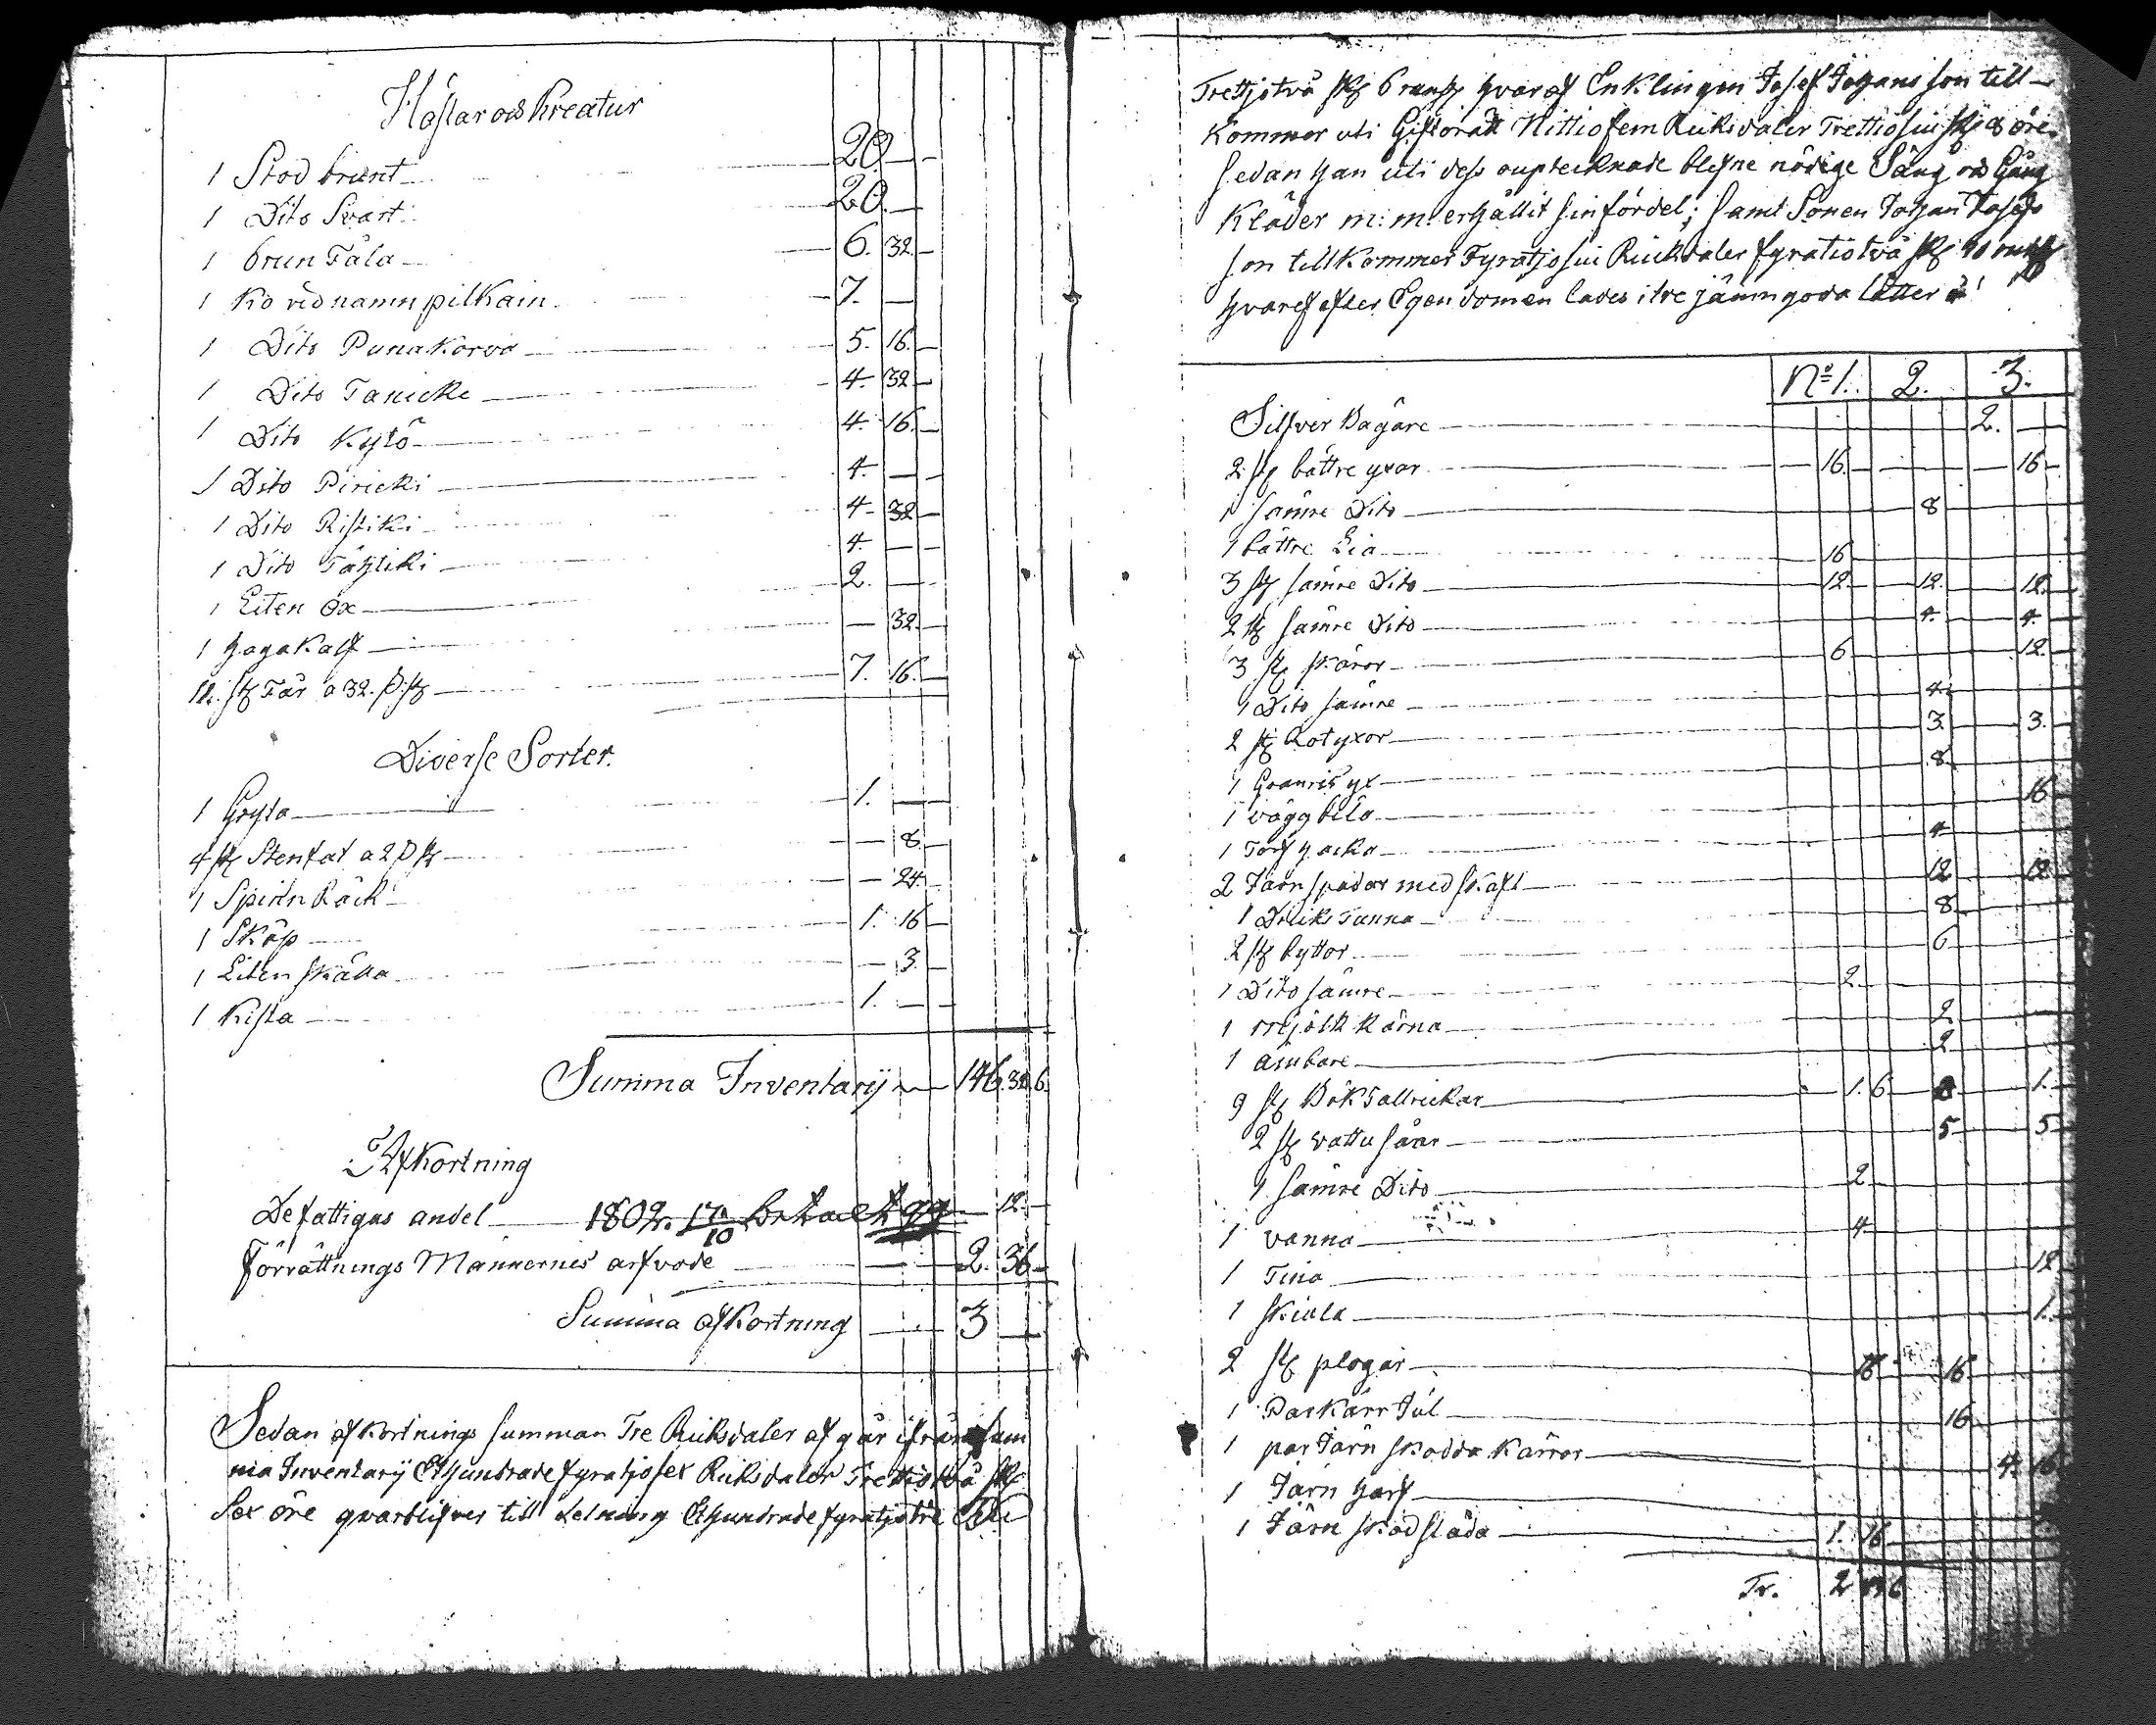 Hästar och Kreatur
1 Stod brunt 20. — —
1 Dito Svart 20. —
1 brun Fåla 6. 32. —
1 Ko vid namn pilkain 7. —
1 Dito Punakorva 5. 16. —
1 Dito Tanicke 4. 32 —
1 Dito Kytö 4. 16. —
1 Dito Piricki 4. — —
1 Dito Ristiki 4. 32 —
1 Dito Tähtiki 4. — —
1 Liten Ox 2. — —
1 haga Kalf — 32. —
11. st Får a 32. p st 7. 16. —
Diverse Sorter.
1 Gryta 1. — —
4 st Stenfat a 2 p st — 8. —
1 Räck — 24. —
1 Skåp 1. 16 —
1 Liten skålla — 3. —
1 Kista 1. — —
Summa Inventarij 146. 32. 6.
Afkortning
De fattigas andel 1802. 17/10 — 12. —
förrättnings Mannernes arfvode — 2. 36 —
Summa afkortning — 3 —
Sedan afkortnings summan Tre Riksdaler afgår ifrån sum
ma Inventarij Etthundrade fyratjosex Riksdaler Trettiotvå sk
Sex öre qvarblifver till delning Etthundrade fyratjotre Rd
Trettjotvå sk 6 hvaraf Enklingen Josef Johansson till-
kommer uti Giftorätt Nittiofem Riksdaler Trettiosju sk 8 öre.
sedan han uti dess ouptecknade blefne nödige Säng och Gång
Kläder m: m: erhållit sin fördel; samt Sonen Johan Josefs
son tillkommer Fyratjosju Riksdaler fyratiotvå sk 10
hvarefter Egendomen lades i tre jämngoda låtter
No 1. 2. 3.
Silfver Bägare 2. —
2 st bättre yxor 16. — 16 —
1 sämre Dito 8
1 bättre Lia 16
3 st sämre Dito 12. 12. 12.
2 st sämre Dito 4. 4.
3 st skäror 6 12.
1 Dito sämre 4.
2 st Rotyxor 3. 3.
1 Granris yx 8.
1 vägg bila 16
1 Torf hacka 4
2 Järn spadar med skaft 12 12
1 Dricks Tunna 8
2 st byttor 6
1 Dito sämre 2
1 mjölk Kärna 2
1 ämbare 2
9 st Bök Tallrickar 1. 6 1.
2 st vattu såar 5 5
1 sämre Dito 2
1 vanna 4
1 Tina 12
1 skiula 1.
2 st plogar 16 16
1 Par Kärr Jul 16
1 par Järn skodda Kärror 4. 16
1 Järn harf
1 Järn skod släda 1. 16
Tr. 2